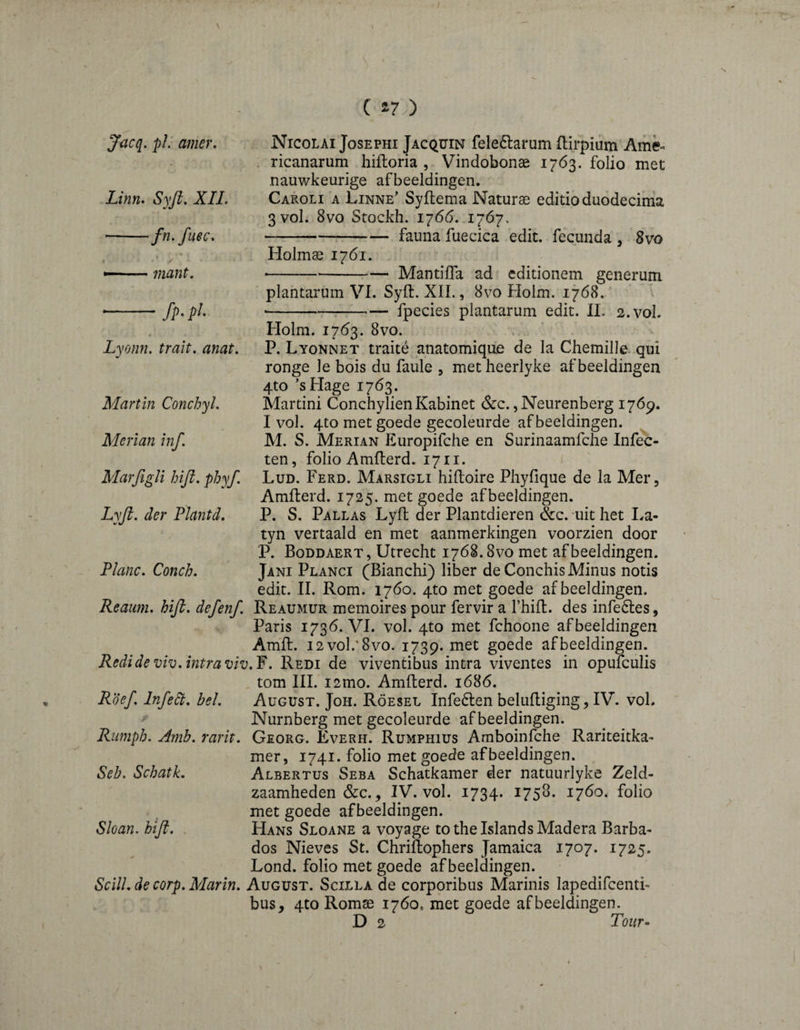 ( 27 )
Jacq. pl. amer. Nicolai Josephi Jacquin ſelectarum ſtirpium Ame-
ricanarum hiſtoria , Vindobonæ 1763. folio met
nauwkeurige afbeeldingen.
Linn. Syſt. XII. Caroli a Linne' Syſtema Naturæ editio duodecima
3 vol. 8vo Stockh. 1766. 1767.
—— fn. ſuec. —————— fauna ſuecica edit. ſecunda , 8vo
Holmæ 1761.
—— mant. —————— Mantiſſa ad editionem generum
plantarum VI. Syſt. XII., 8vo Holm. 1768.
—— ſp. pl. —————— ſpecies plantarum edit. II. 2.vol.
Holm. 1763. 8vo.
Lyonn. trait. anat. P. Lyonnet traité anatomique de la Chemille qui
ronge le bois du ſaule , met heerlyke afbeeldingen
4to 's Hage 1763.
Martin Conchyl. Martini Conchylien Kabinet &c., Neurenberg 1769.
I vol. 4to met goede gecoleurde afbeeldingen.
Merian inſ. M. S. Merian Europiſche en Surinaamſche Inſec-
ten, folio Amſterd. 1711.
Marſigli hiſt. phyſ. Lud. Ferd. Marsigli hiſtoire Phyſique de la Mer,
Amſterd. 1725. met goede afbeeldingen.
Lyſt. der Plantd. P. S. Pallas Lyſt der Plantdieren &c. uit het La-
tyn vertaald en met aanmerkingen voorzien door
P. Boddaert, Utrecht 1768. 8vo met afbeeldingen.
Planc. Conch. Jani Planci (Bianchi) liber de Conchis Minus notis
edit. II. Rom. 1760. 4to met goede afbeeldingen.
Reaum. hiſt. defenſ. Reaumur memoires pour ſervir a l'hiſt. des inſectes,
Paris 1736. VI. vol. 4to met ſchoone afbeeldingen
Amſt. 12 vol. 8vo. 1739. met goede afbeeldingen.
Redi de viv. intra viv. F. Redi de viventibus intra viventes in opuſculis
tom III. 12mo. Amſterd. 1686.
Röeſ. Inſect. bel. August. Joh. Röesel Inſecten beluſtiging, IV. vol.
Nurnberg met gecoleurde afbeeldingen.
Rumph. Amb. rarit. Georg. Everh. Rumphius Amboinſche Rariteitka-
mer, 1741. folio met goede afbeeldingen.
Seb. Schatk. Albertus Seba Schatkamer der natuurlyke Zeld-
zaamheden &c., IV. vol. 1734. 1758. 1760. folio
met goede afbeeldingen.
Sloan. hiſt. Hans Sloane a voyage to the Islands Madera Barba-
dos Nieves St. Chriſtophers Jamaica 1707. 1725.
Lond. folio met goede afbeeldingen.
Scill. de corp. Marin. August. Scilla de corporibus Marinis lapediſcenti-
bus, 4to Romæ 1760. met goede afbeeldingen.
D 2 Tour-